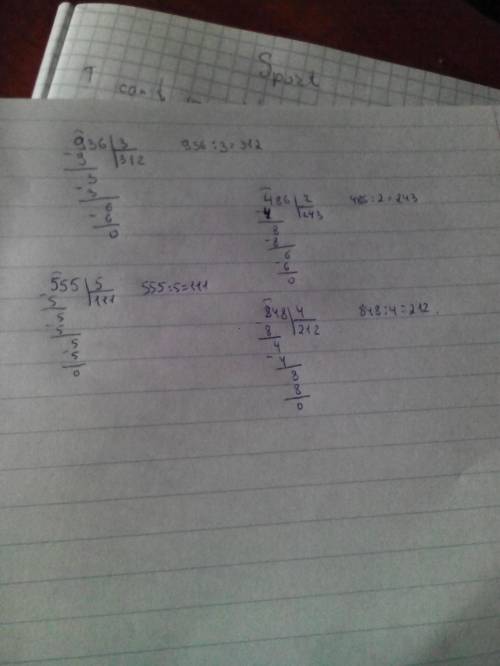 Sport
I can't
936 | 3
312
- 9
3
- 3
6
- 6
0
936 : 3 = 312
486 | 2
243
- 4
8
- 8
6
- 6
0
486 : 2 = 243
555 | 5
111
- 5
5
- 5
5
- 5
0
555 : 5 = 111
848 | 4
212
- 8
4
- 4
8
8
0
848 : 4 = 212.